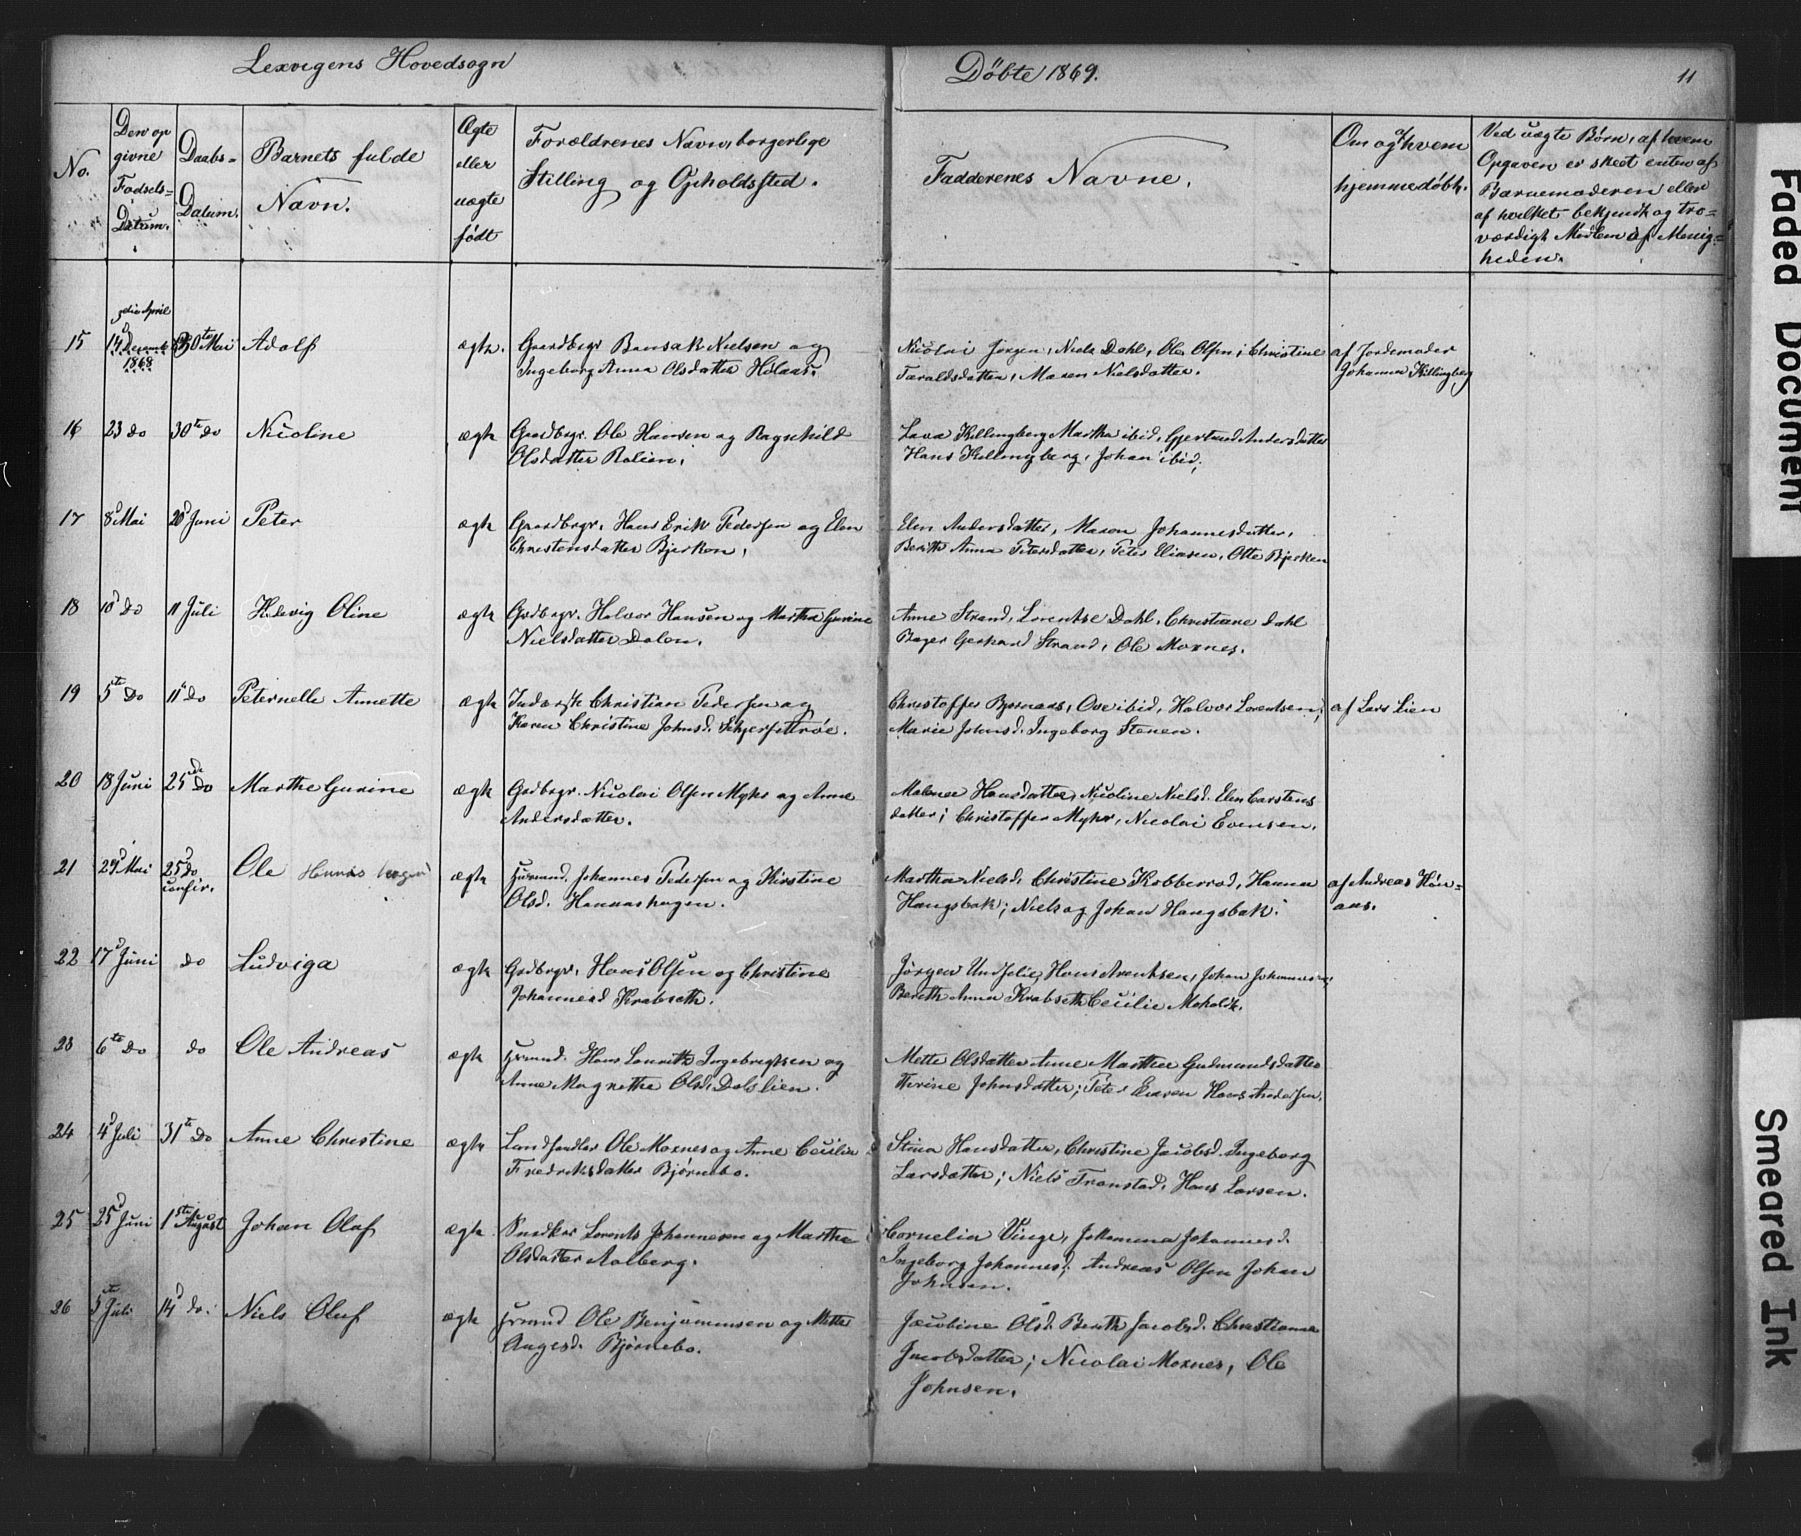 Lexvigens Hovedsogn
Döbte 1869.
11
No.
Den op
givne
Fødsels-
Datum.
Daabs-
Datum.
Barnets fulde
Navn.
Ægte
eller
uægte
født
Forældrenes Navn, borgerlige
Stilling og Opholdssted.
Fadderenes Navne.
Om og af hvem
hjemmedøbt.
Ved uægte Børn, af hvem
Opgaven er skeet enten af
Barnemoderen eller
af hvilket bekjendt og tro-
værdigt Medlem af Menig-
heden.
15
April
14 Decemb
1868
30te Mai
Adolf
ægte.
Gaardbrgr Nielsen og
Ingeborg Anna Olsdatter Hilaas.
Nicolai Jørgen, Niels Dahl, Ole Olsen; Christine
Taraldsdatter, Maren Nielsdatter.
af Jordemoder
Johanna Killingberg
16
23 do
30te do
Nicoline
ægte
Grdbrgr. Ole Hansen og Ragnhild
Olsdatter Rolien.
Lava Killingberg Martha ibid, Gjertrud Andersdatter
Hans Killingberg, Johan ibid;
17
8d Mai
20d Juni
Peter
ægte
Gaardbrgr. Hans Erik Pedersen og Elen
Christensdatter Bjerken,
Elen Andersdatter, Maren Johannesdatter,
Berith Anna Petersdatter, Peter Eliasen, Otte Bjerken
18
10d do
11 Juli
Hedevig Oline
ægte
Grdbrgr. Halvor Hansen og Martha Gurine
Nielsdatter Dalen.
Anne Strand, Lorentse Dahl, Christiane Dahl
Gerhard Strand, Ole Moxnes.
19
5te do
11 do
Peternelle Annette
ægte
Inderst Christian Pedersen og
Karen Christine Johnsd.
Christoffer Bjørnaas, Ove ibid, Halvor Lorentsen;
Marie Johnsd. Ingeborg Stenen.
af Lars Lien
20
18 Juni
25de do
Marthe Gurine
ægte
Grdbrgr. Nicolai Olsen Myhr og Anne
Andersdatter.
Malena Hansdatter, Nicoline Nielsd. Elen Carstens
datter; Christoffer Myhr, Nicolai Evensen.
21
29d Mai
25d do
confir.
Ole
ægte
Husmd. Johannes Pedersen og Kirstine
Olsd. Hannashagen.
Martha Nielsd. Christine Kobberrød, Hanna
Hangsbak; Niels og Johan Hangsbak.
af Andreas Hön-
aas.
22
17d Juni
do
Ludviga
ægte
Grdbrgr. Hans Olsen og Christine
Johannesd Krabseth.
Jörgen Undselie, Hans Arentsen, Johan Johannesen
Bereth Anna Krabseth Cecilie Moholdt.
23
6te do
do
Ole Andreas
ægte
Husmd. Hans Lauritz Ingebrigtsen og
Anne Magrethe Olsd. Dalslien.
Mette Olsdatter Anne Marthea Gudmundsdatter
Johnsdatter; Peter Hans Andersen.
24
4d Juli
31te do
Anne Christine
ægte
Landhandler Ole Moxnes og Anne Cecilie
Fredriksdatter Bjørnebo.
Stina Hansdatter, Christine Jacobsd. Ingeborg
Larsdatter; Niels Tronstad, Hans Larsen.
25
25d Juni
1ste August
Johan Olaf
ægte
Snedker Lorents Johannesen og Martha
Olsdatter Aalberg.
Cornelia Vinge, Johanna Johannesd.
Ingeborg Johannesd; Andreas Olsen Johan
Johnsen.
26
5te Juli
14d do.
Niels Oluf
ægte
Husmd Ole Benjaminsen og Mette
Aagesd. Bjørnebo.
Jacobine Olsd. Bereth Jacobsd. Christianna
Jacobsdatter; Nicolai Moxnes, Ole
Johnsen.
Faded Document
Smeared Ink